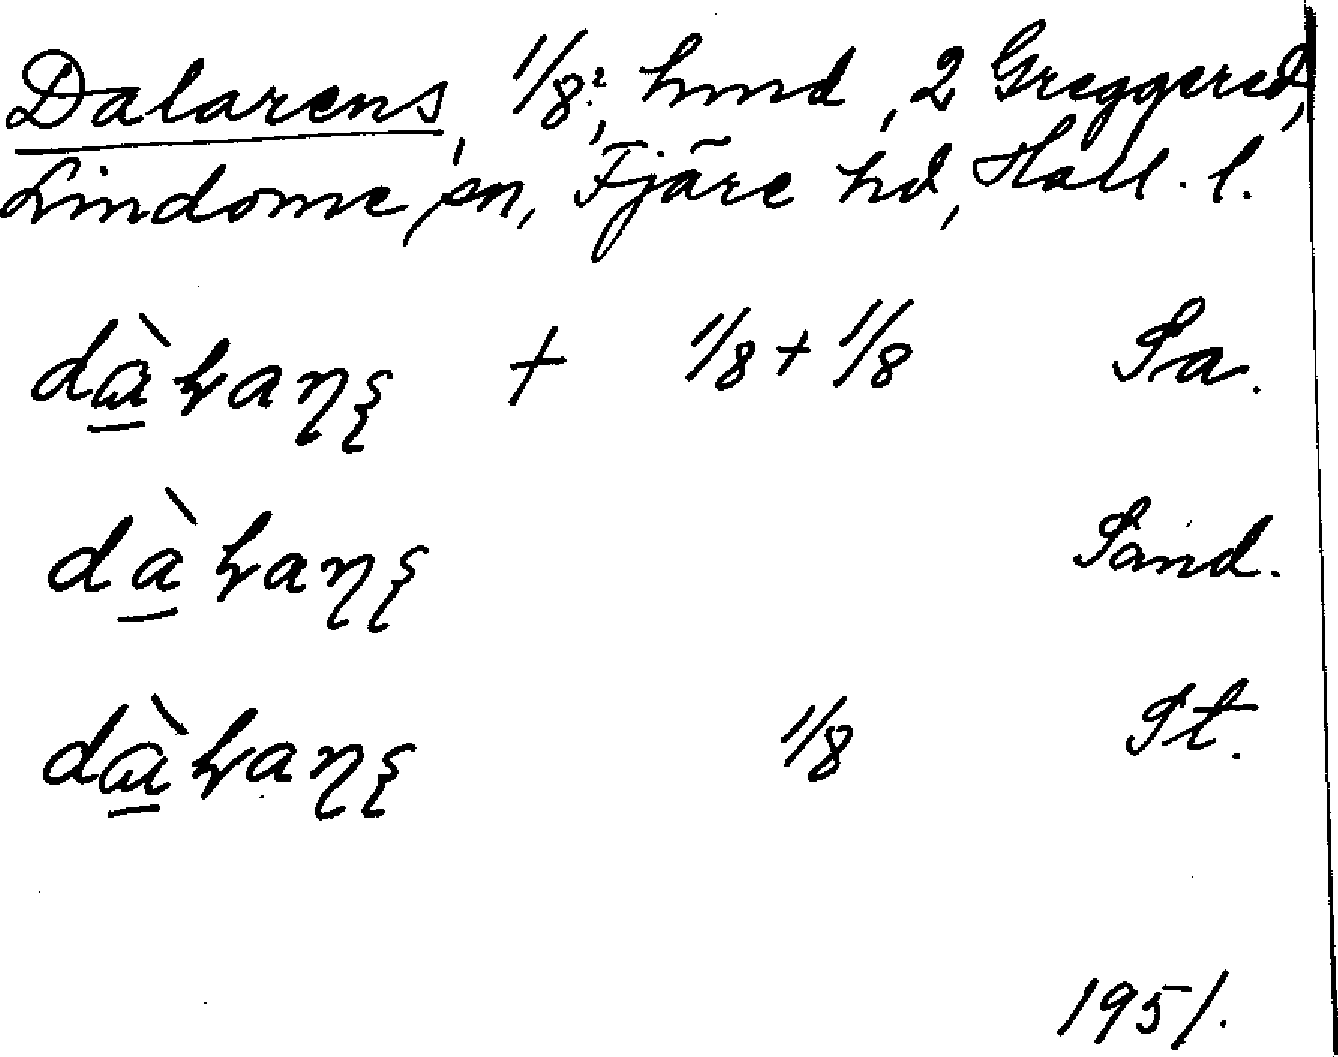 Dalarens, 1/8?, hmd, 2 Greggered,
Lindome sn, Fjäre hd, Hall. l.
dàɽaɳʂ + 1/8 + 1/8 Sa.
dàɽaɳʂ Sand.
dàɽaɳʂ 1/8 St.
1951.